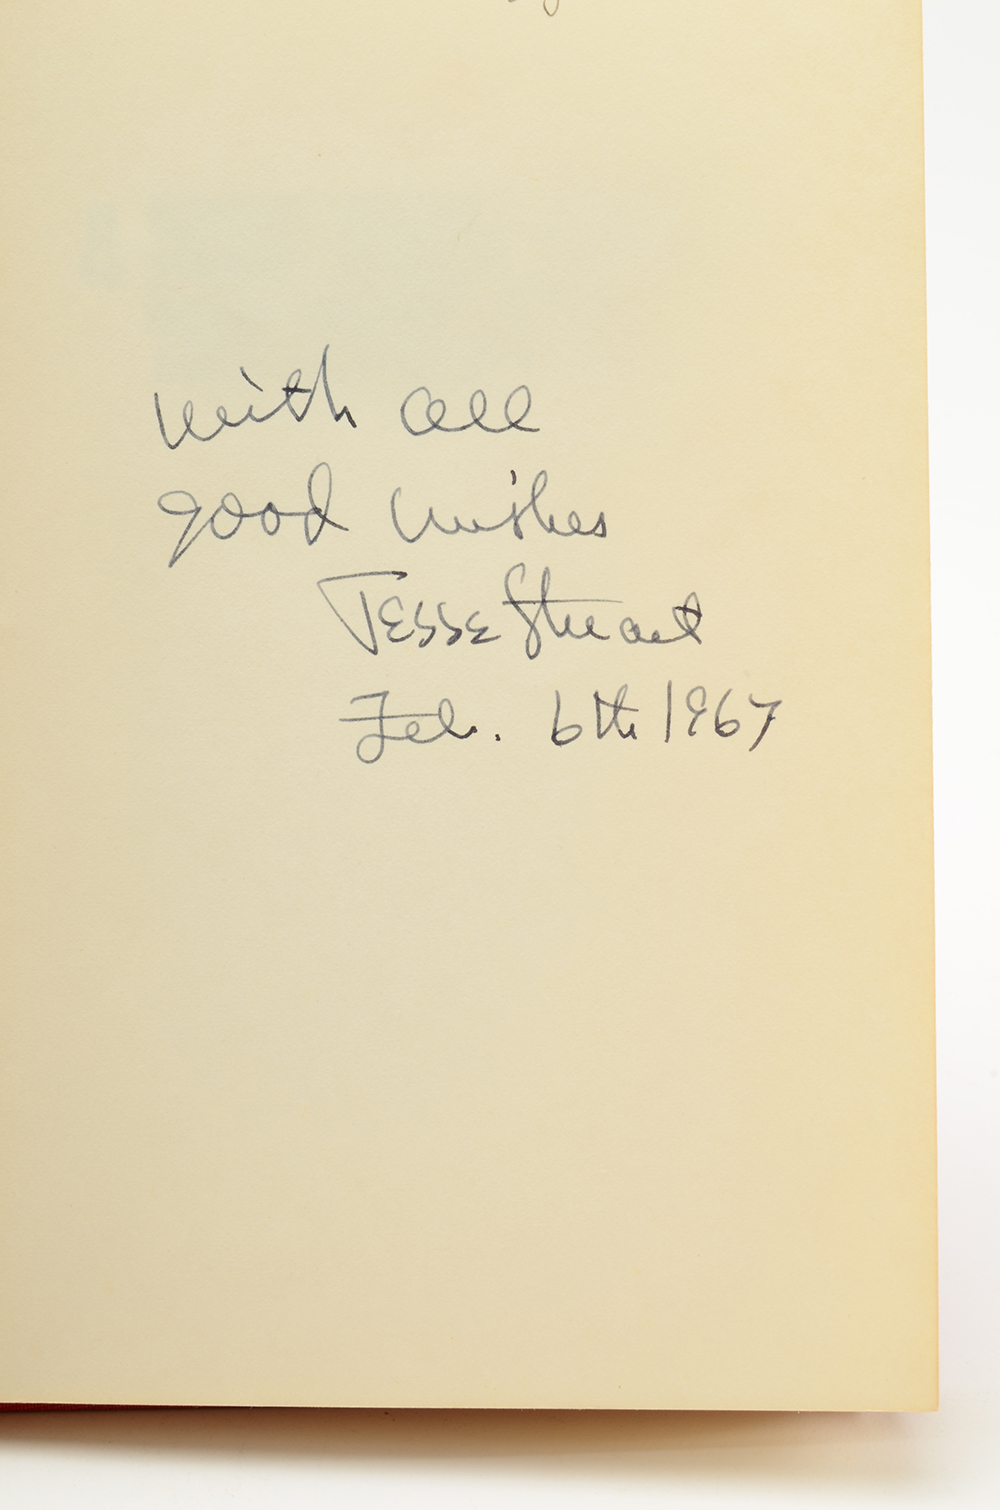 with all
good wishes
Jesse Stuart
Feb. 6th 1967